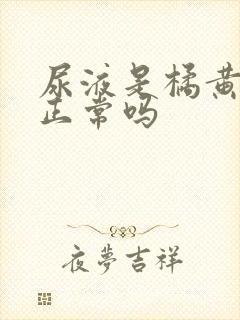 尿液是橘黄
正常吗
夜夢吉祥